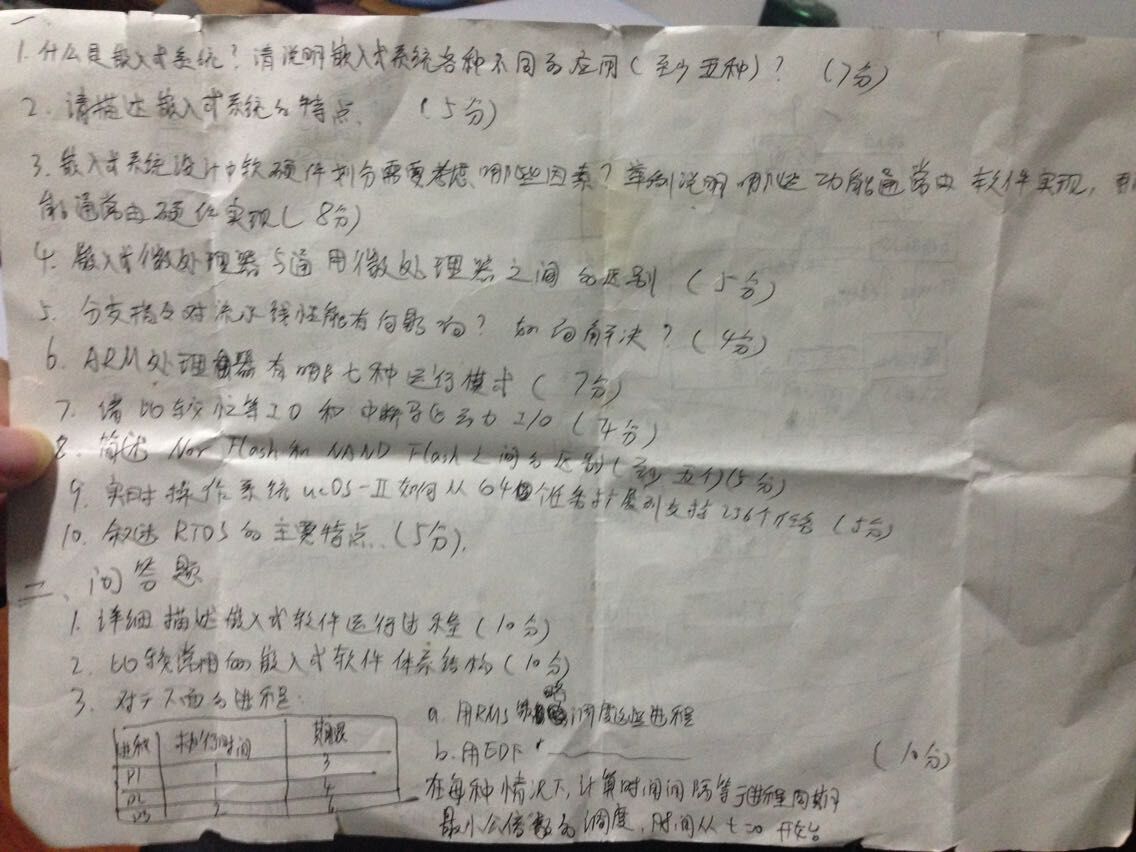 一
1.什么是嵌入式系统？请说明嵌入式系统各种不同的应用(至少五种)？ (7分)
2.请描述嵌入式系统的特点. (5分)
3.嵌入式系统设计中软硬件划分需要考虑哪些因素？举例说明哪些功能通常由软件实现，
能通常由硬件实现(8分)
4.嵌入式微处理器与通用微处理器之间的区别 (5分)
5.分支指令对流水线性能有何影响？如何解决？(4分)
6.ARM处理器有哪七种运行模式(7分)
7.请比较忙等IO和中断驱动I/O(4分)
8.简述Nor Flash和NAND Flash之间的区别(至少五个)(5分)
9.实时操作系统ucOS-II如何从64个任务扩展到支持256个任务 (5分)
10.叙述RTOS的主要特点.(5分).
二、问答题
1.详细描述嵌入式软件运行过程(10分)
2.比较常用的嵌入式软件体系结构(10分)
3.对于下面的进程:
进程 执行时间 期限
P1 1 3
P2 1 4
P3 2 6
a.用RMS策略调度这些进程
b.用EDF (10分)
在每种情况下,计算时间间隔等于进程周期
最小公倍数的调度,时间从t=0开始